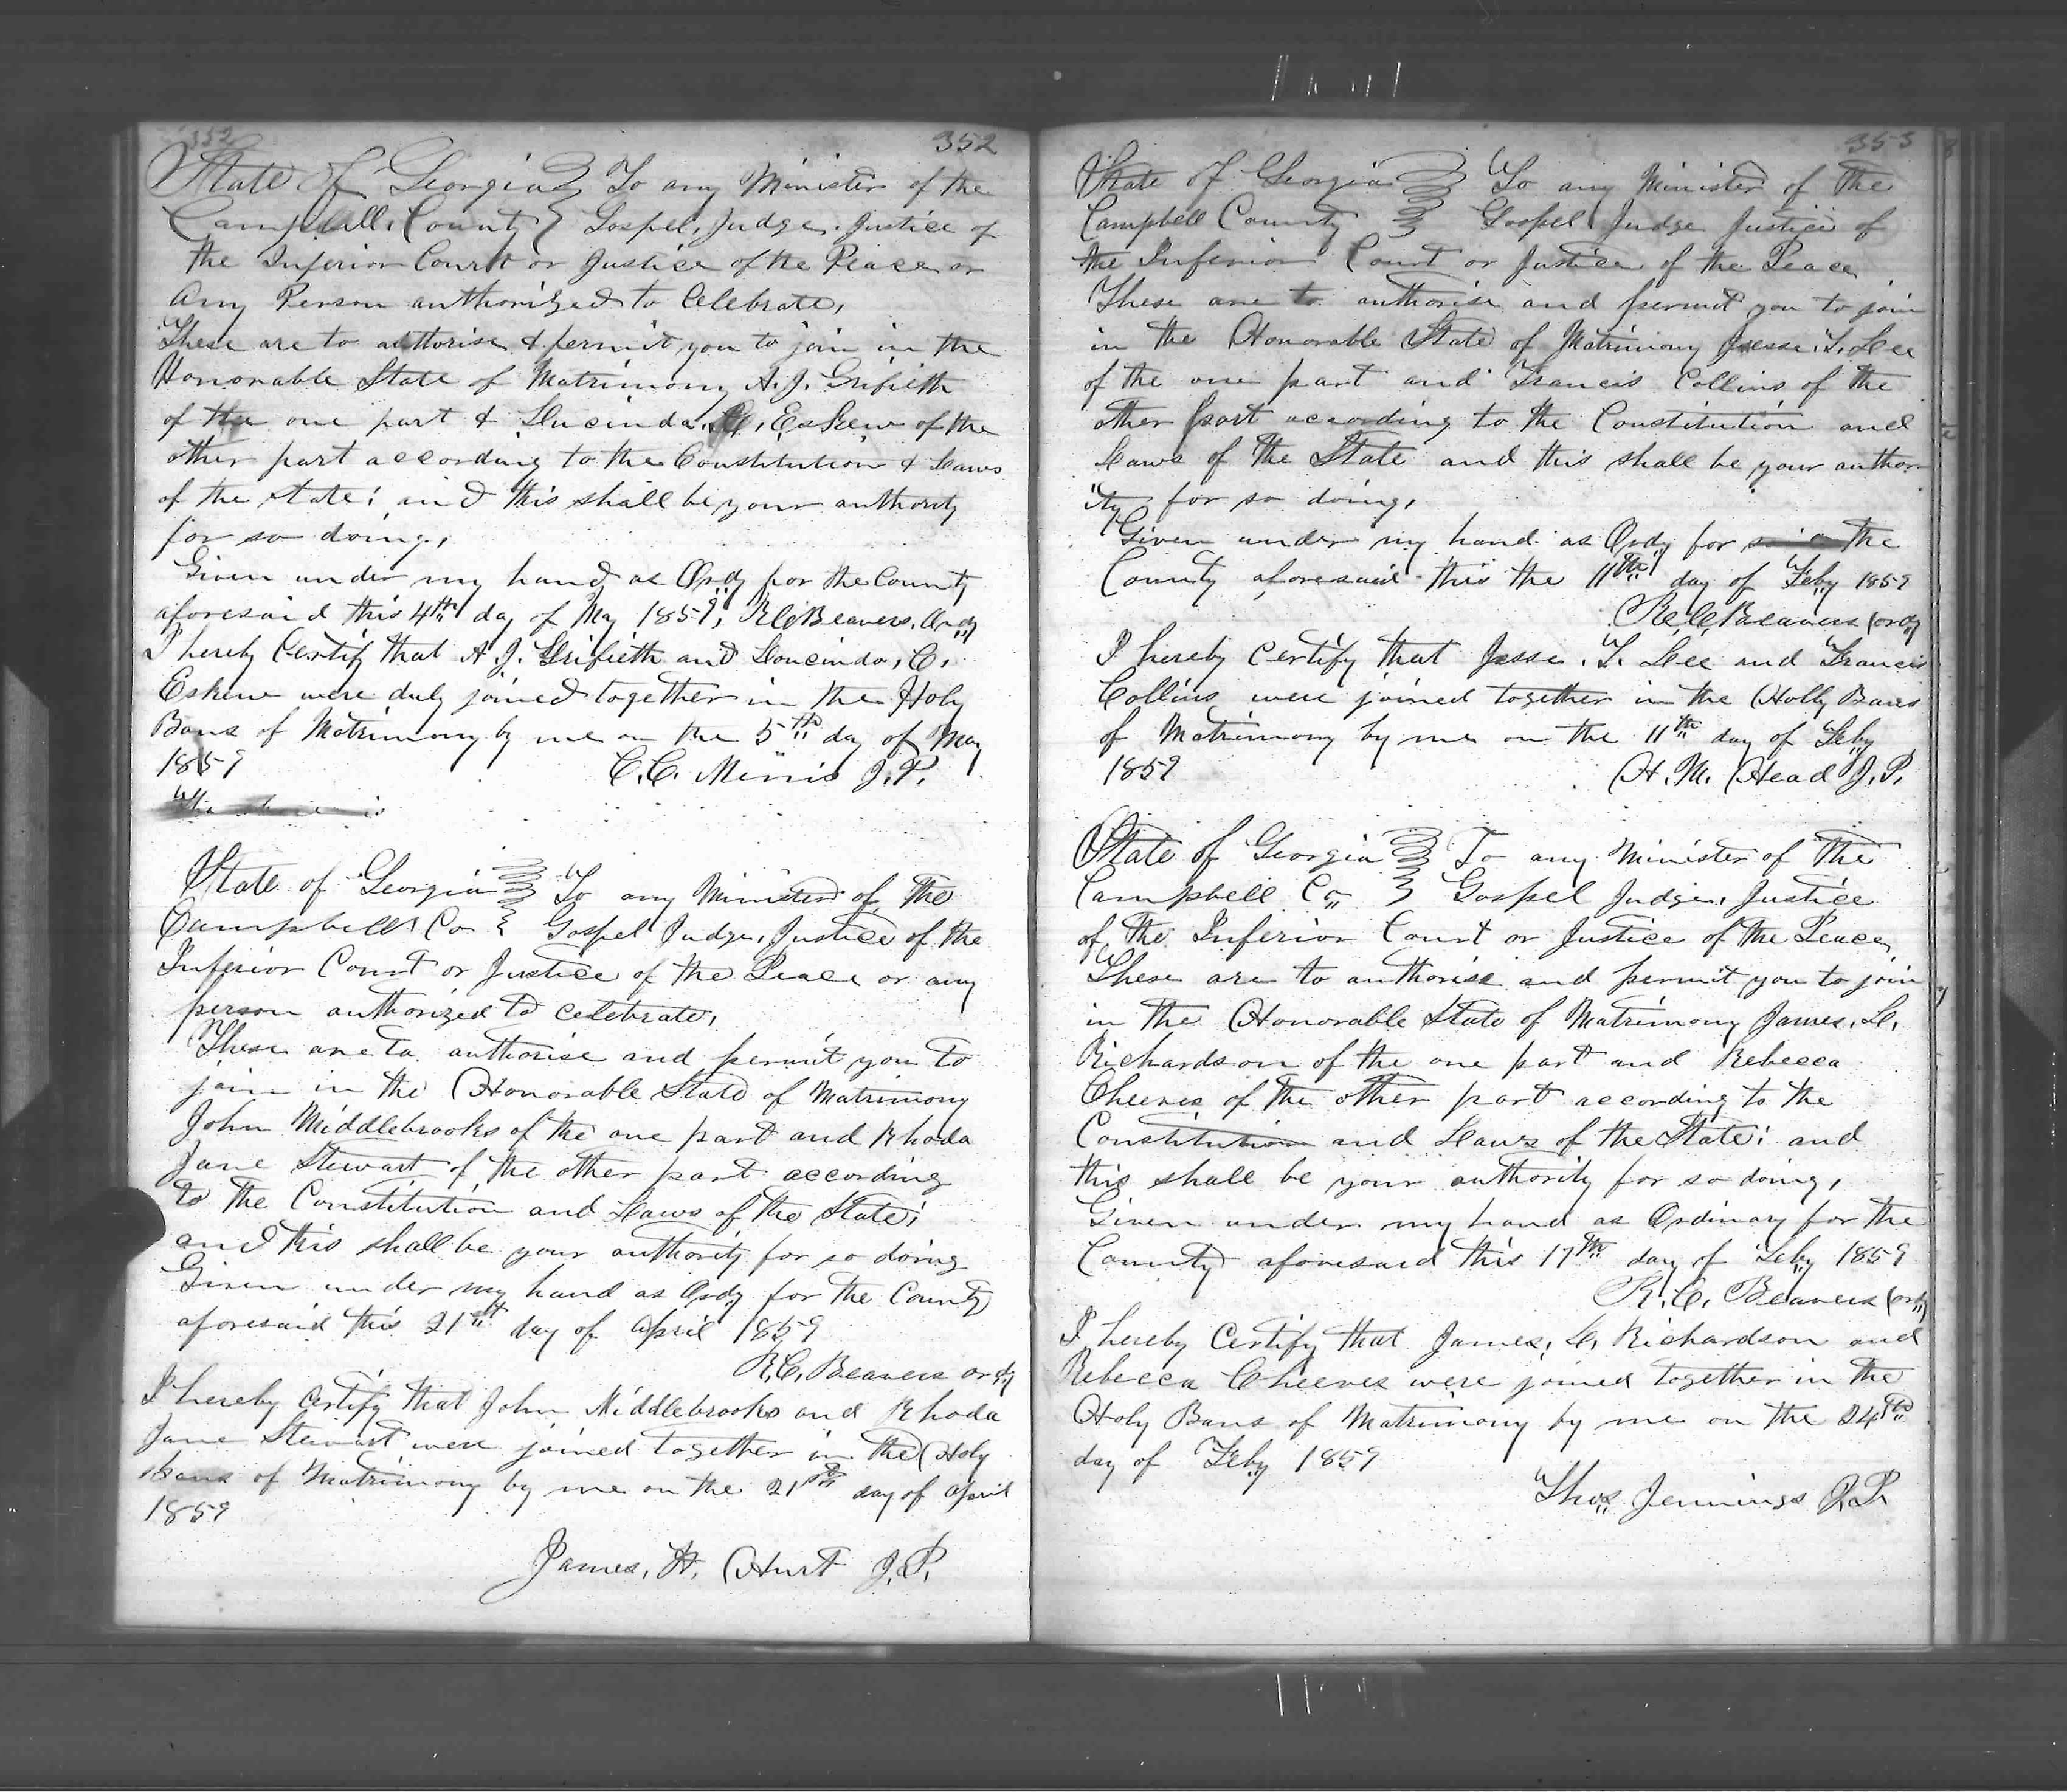 352
352
State of Georgia } To any Minister of the
Campbell County } Gospel, Judge, Justice of
the Inferior Court or Justice of the Peace or
any Person authorized to Celebrate,
These are to authorise & permit you to join in the
Honorable State of Matrimony A. J. Grifieth
of the one part & Lucinda, C, Eskew of the
other part according to the Constitution & Laws
of the State; and this shall be your authority
for so doing,
Given under my hand as Ordy for the County
aforesaid this 4th day of May 1859, R C Beavers, Ordy
I hereby Certify that A J. Grifieth and Loucinda, C,
Eskew were duly joined together in the Holy
Bans of Matrimony by me on the 5th day of May
1859 C. C. Minis J. P.
State of Georgia } To any Minister of the
Campbell Co } Gospel Judge, Justice of the
Inferior Court or Justice of the Peace or any
person authorized to celebrate,
These are to authorise and permit you to
join in the Honorable State of Matrimony
John Middlebrooks of the one part and Rhoda
Jane Stewart of the other part according
to the Constitution and Laws of the State;
and this shall be your authority for so doing
Given under my hand as Ordy for the County
aforesaid this 21st day of April 1859
R, C, Beavers ordy
I hereby certify that John Middlebrooks and Rhoda
Jane Stewart were joined together in the Holy
Bans of Matrimony by me on the 21st day of April
1859
James, H, Hurt J. P.
353
State of Georgia } To any Minister of the
Campbell County } Gospel Judge Justice of
the Inferior Court or Justice of the Peace
These are to authorise and permit you to join
in the Honorable State of Matrimony Jesse, T, Lee
of the one part and Francis Collins of the
other part according to the Constitution and
Laws of the State and this shall be your author
"ity for so doing,
Given under my hand as Ordy for the
County aforesaid this the 11th day of Feby 1859
R, C, Beavers (ordy
I hereby certify that Jesse, T. Lee and Francis
Collins were joined together in the Holly Bans
of Matrimony by me on the 11th day of Feby
1859 H. M. Head J. P.
State of Georgia } To any Minister of the
Campbell Co } Gospel Judge, Justice
of the Inferior Court or Justice of the Peace,
These are to authorise and permit you to join
in the Honorable State of Matrimony James, L,
Richardson of the one part and Rebecca
Cheeves of the other part according to the
Constitution and Laws of the State; and
this shall be your authority for so doing,
Given under my hand as Ordinary for the
County aforesaid this 17th day of Feby 1859
R. C, Beavers (ordy
I hereby Certify that James, L, Richardson and
Rebecca Cheeves were joined together in the
Holy Bans of Matrimony by me on the 24th
day of Feby 1859
Thos Jennings J. P.